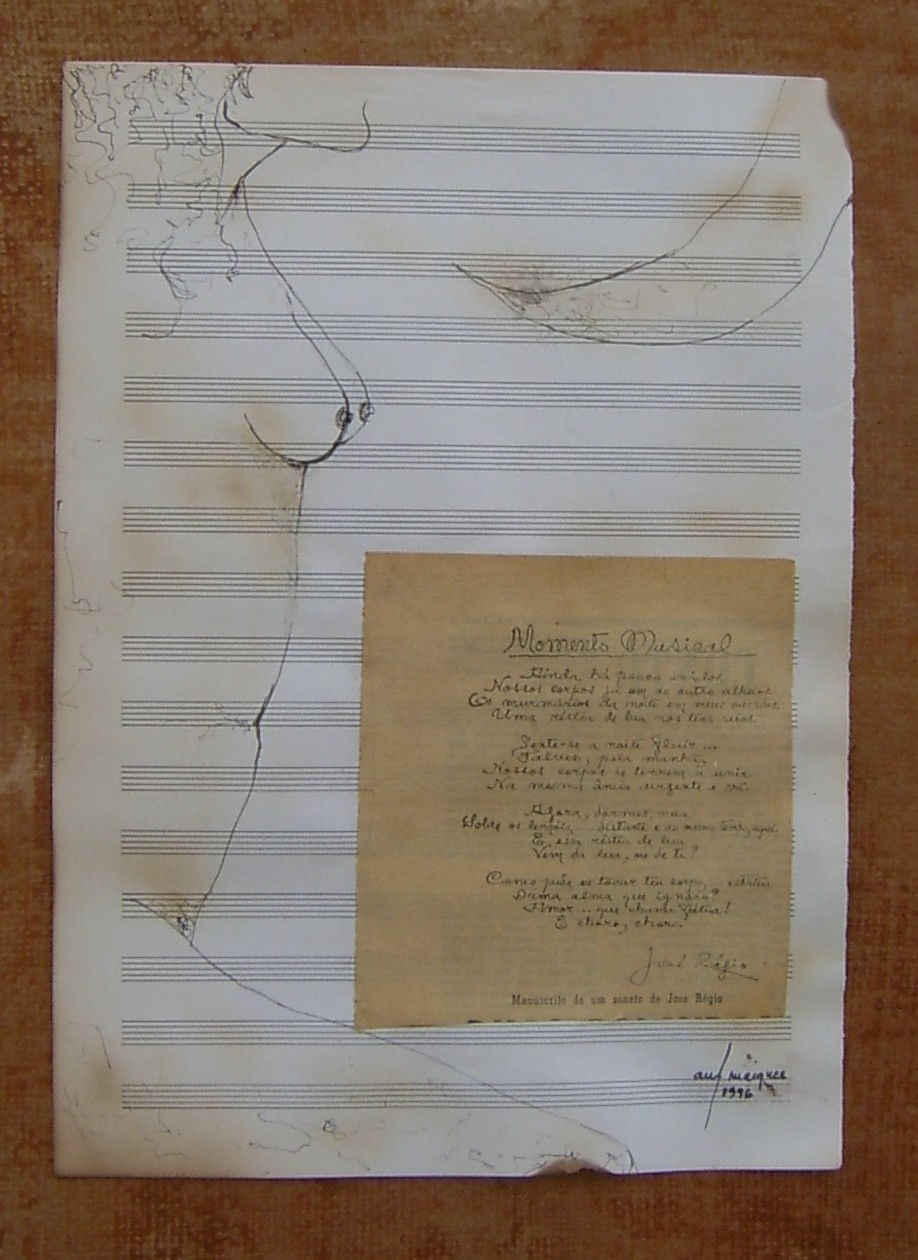 Momento Musical
Ainda há pouco unidos,
Nossos corpos já um ao outro alheios
Os murmúrios da noite em meus ouvidos
Uma réstia de lua nos teus seios
Sente-se a noite fluir...
Talvez, pela manhã,
Nossos corpos se tornem a unir
Na mesma ância urgente e vã.
Agora, dormes, nua
Sobre os lençóis, ... distante e ao mesmo tempo, aqui.
E, essa réstia de lua
Vem da lua, ou de ti?
Como pude eu tocar teu corpo,
Duma alma que ignoro?
Amor... que chama fátua!
E choro, choro.
José Régio
Manuscrito de um soneto de José Régio
1996